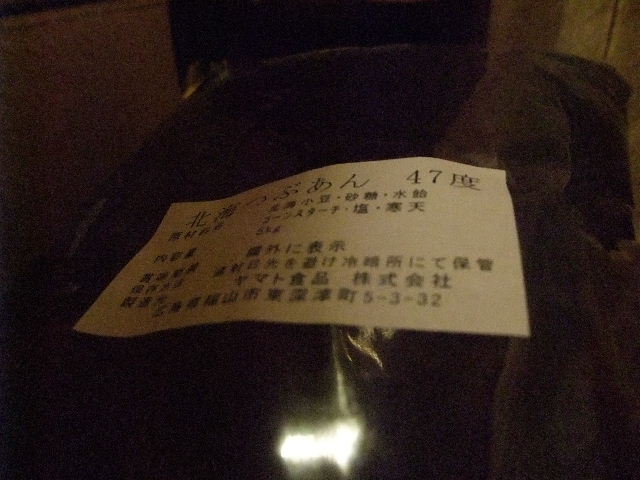 北海つぶあん 47度
原材料名 北海小豆・砂糖・水飴
コーンスターチ・塩・寒天
内容量 5kg
賞味期限 欄外に表示
保存方法 直射日光を避け冷暗所にて保管
製造元 ヤマト食品 株式会社
福山市東深津町5-3-32